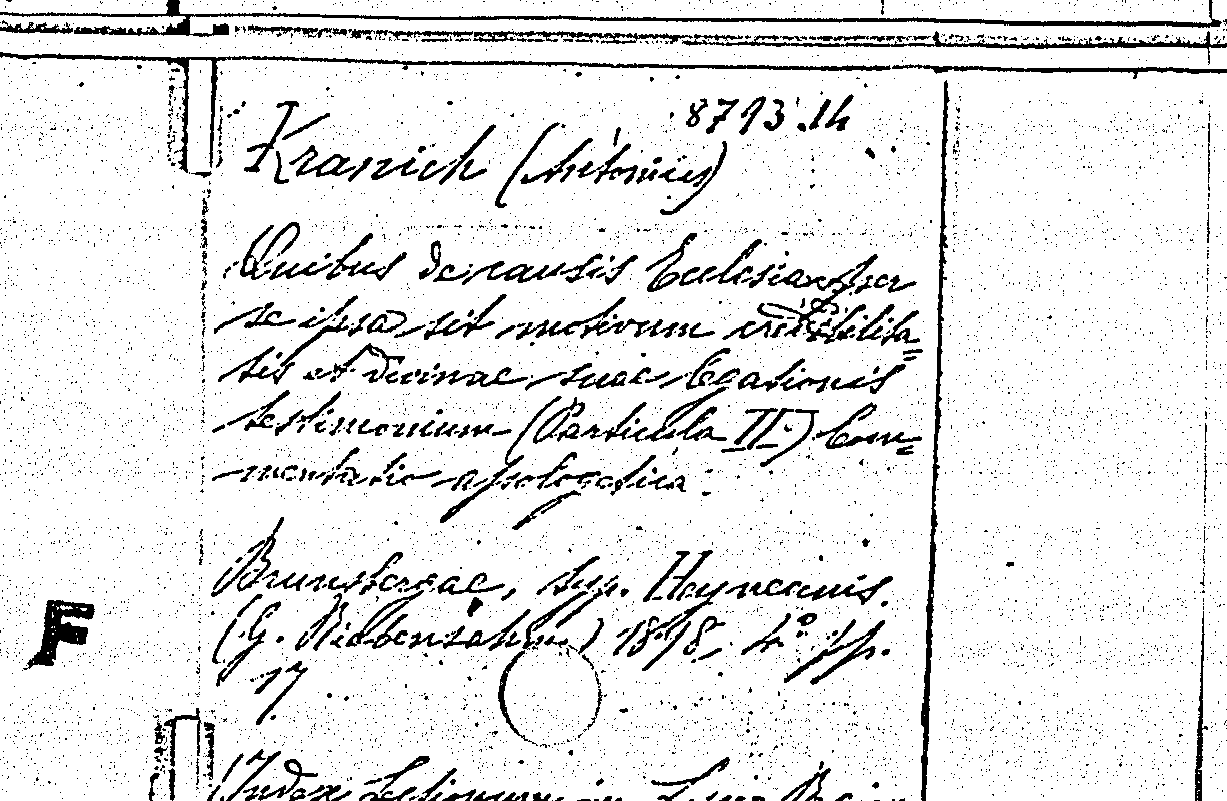 8793.14
Kranich (Antonius)
Quibus de causis Ecclesia per
se ipsa sit motivum credibilita=
tis et divinae suae legationis
testimonium (Particula II.) Com=
mentatio apologetica.
Brunsbergae, typ. Heyneanis.
(G. Riebensahm.) 1898, 4° pp.
17.
F
(Index Lectionum in Lyceo Regio